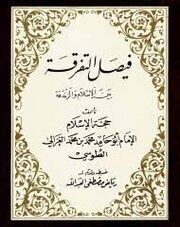 فيصل التفرقة
بين الإسلام والزندقة
تأليف
حجة الإسلام
الإمام أبي حامد محمد بن محمد الغزالي
الطوسي
رياض مصطفى العبدالله